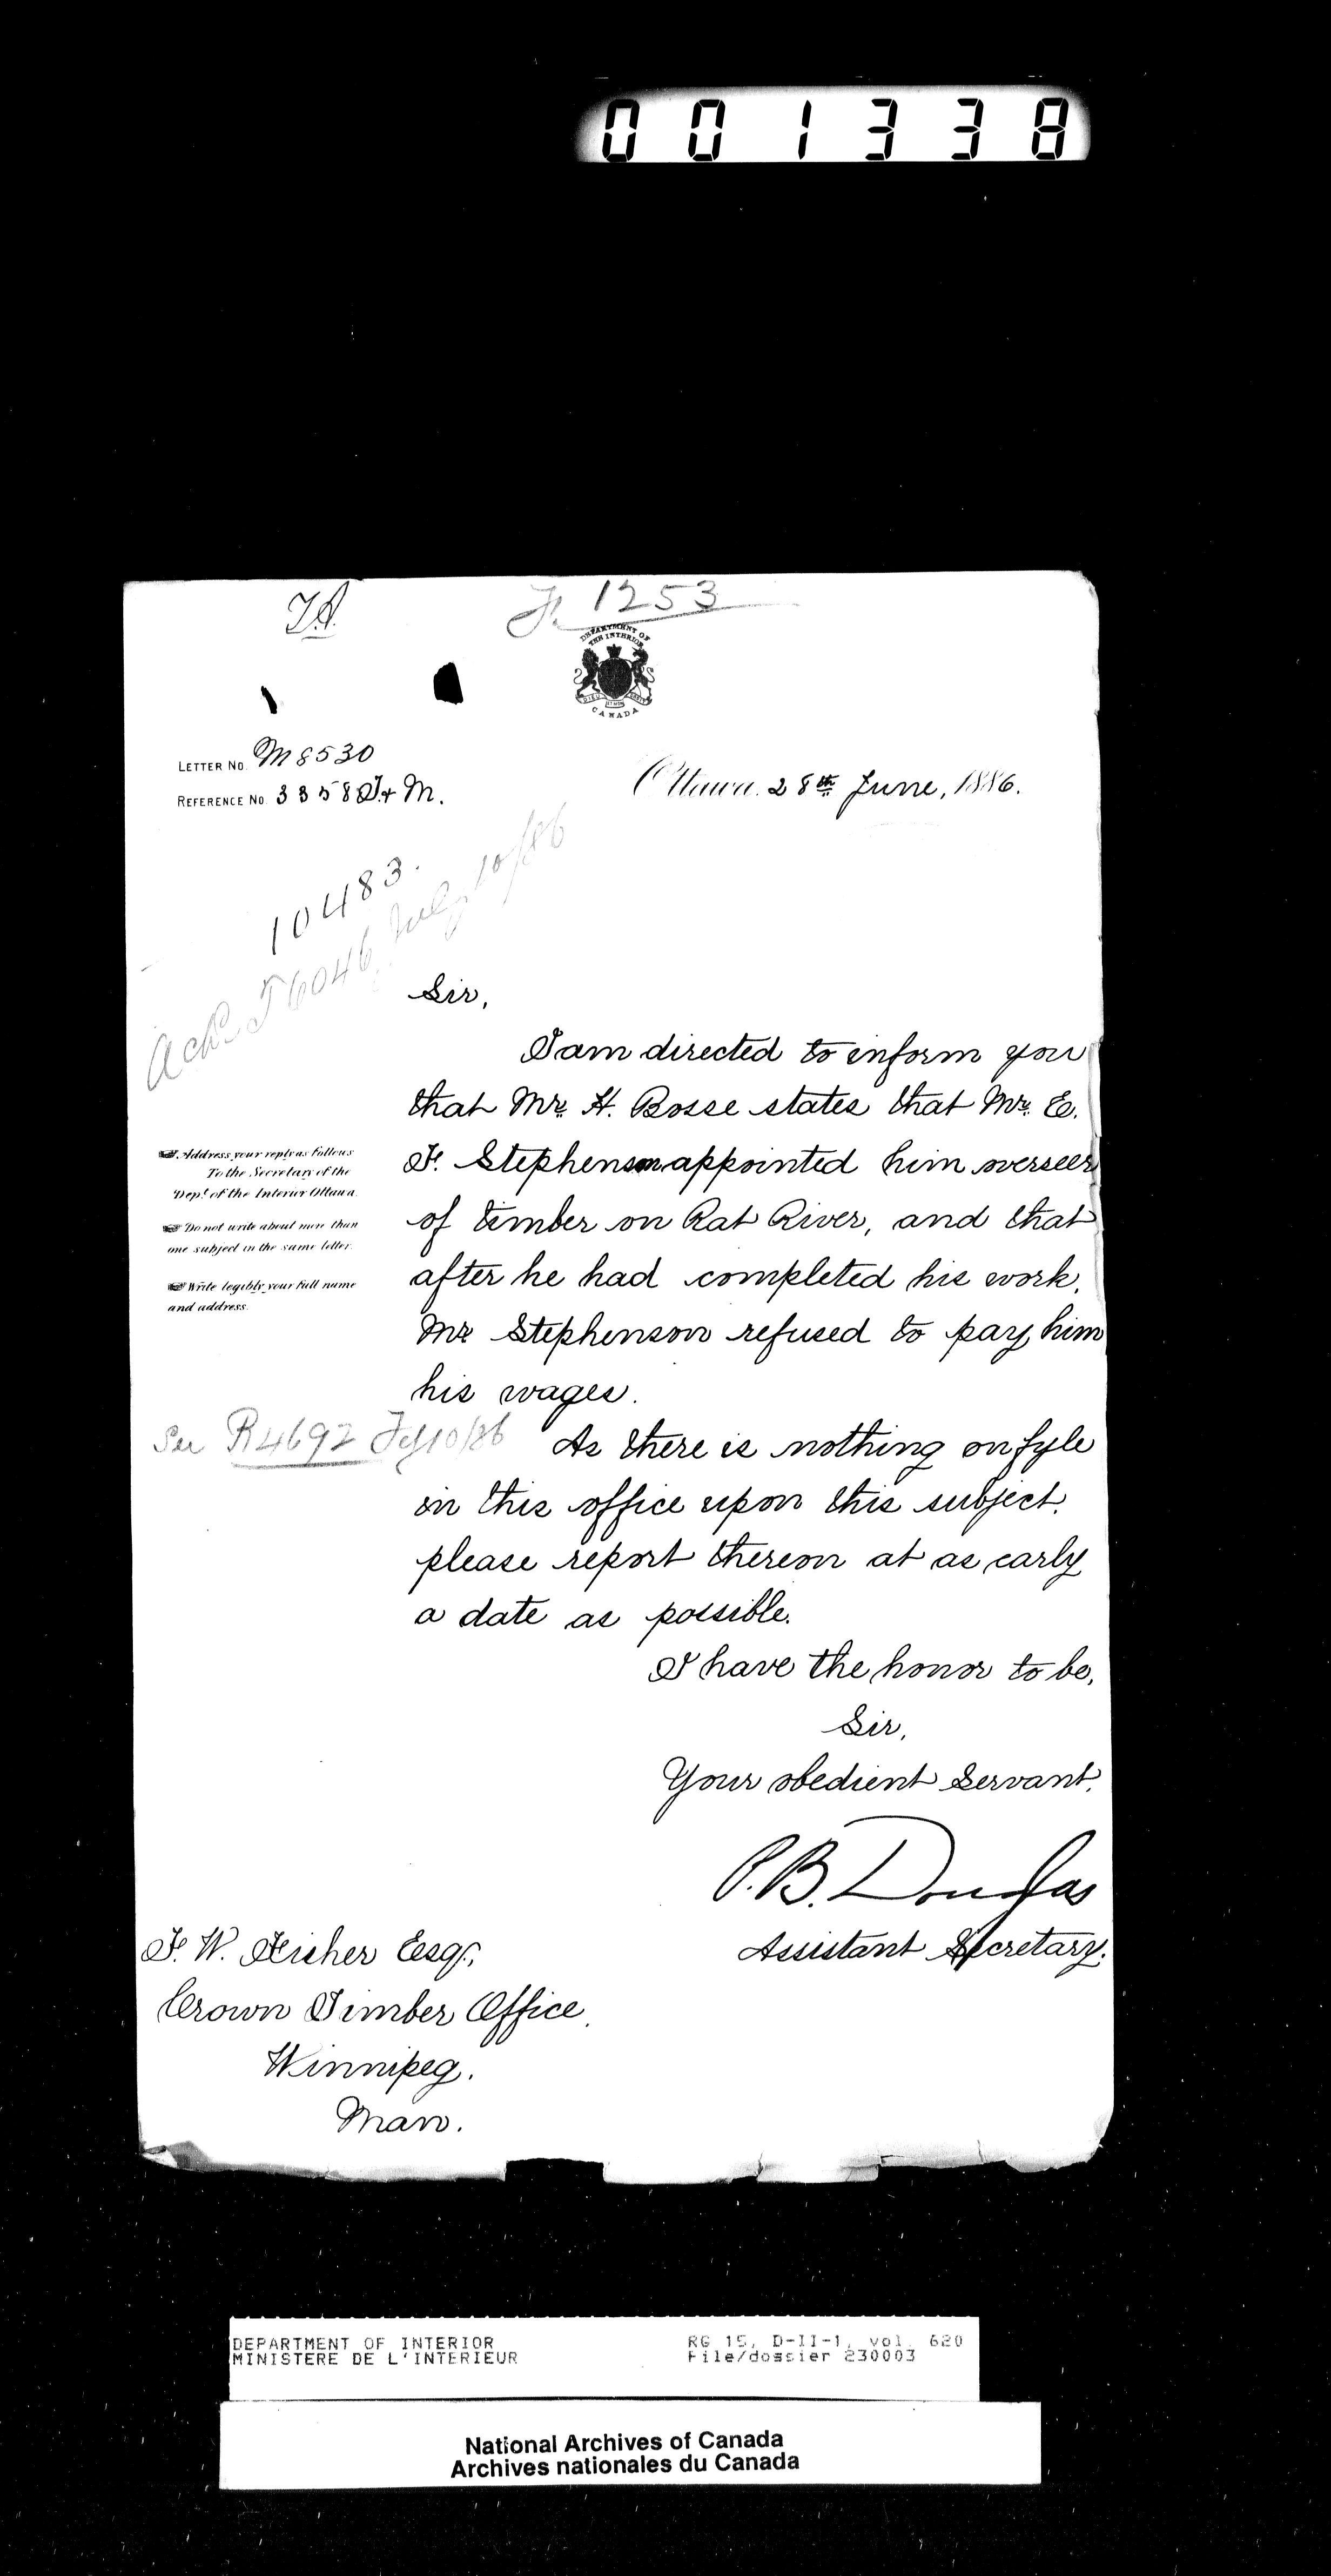 001338
T.A.
F. 1253
DEPARTMENT OF
THE INTERIOR
CANADA
LETTER No. M 8530
REFERENCE No. 33580 T. & M.
Ottawa. 28th June, 1886.
10483.
Ack. T6046 July 10/86
Sir,
I am directed to inform you
that Mr. H. Bosse states that Mr. E.
F. Stephenson appointed him overseer
of timber on Rat River, and that
after he had completed his work,
Mr Stephenson refused to pay him
his wages.
☛ Address your reply as follows
To the Secretary of the
Dept. of the Interior Ottawa.
☛ Do not write about more than
one subject in the same letter.
☛ Write legibly your full name
and address.
See R4692 10/86
As there is nothing on fyle
in this office upon this subject,
please report thereon at as early
a date as possible.
I have the honor to be,
Sir,
Your obedient Servant,
P. B. Douglas
Assistant Secretary.
F. W. Fisher Esq.,
Crown Timber Office,
Winnipeg.
Man.
DEPARTMENT OF INTERIOR
MINISTERE DE L'INTERIEUR
RG 15, D-II-1, vol. 620
File/dossier 230003
National Archives of Canada
Archives nationales du Canada